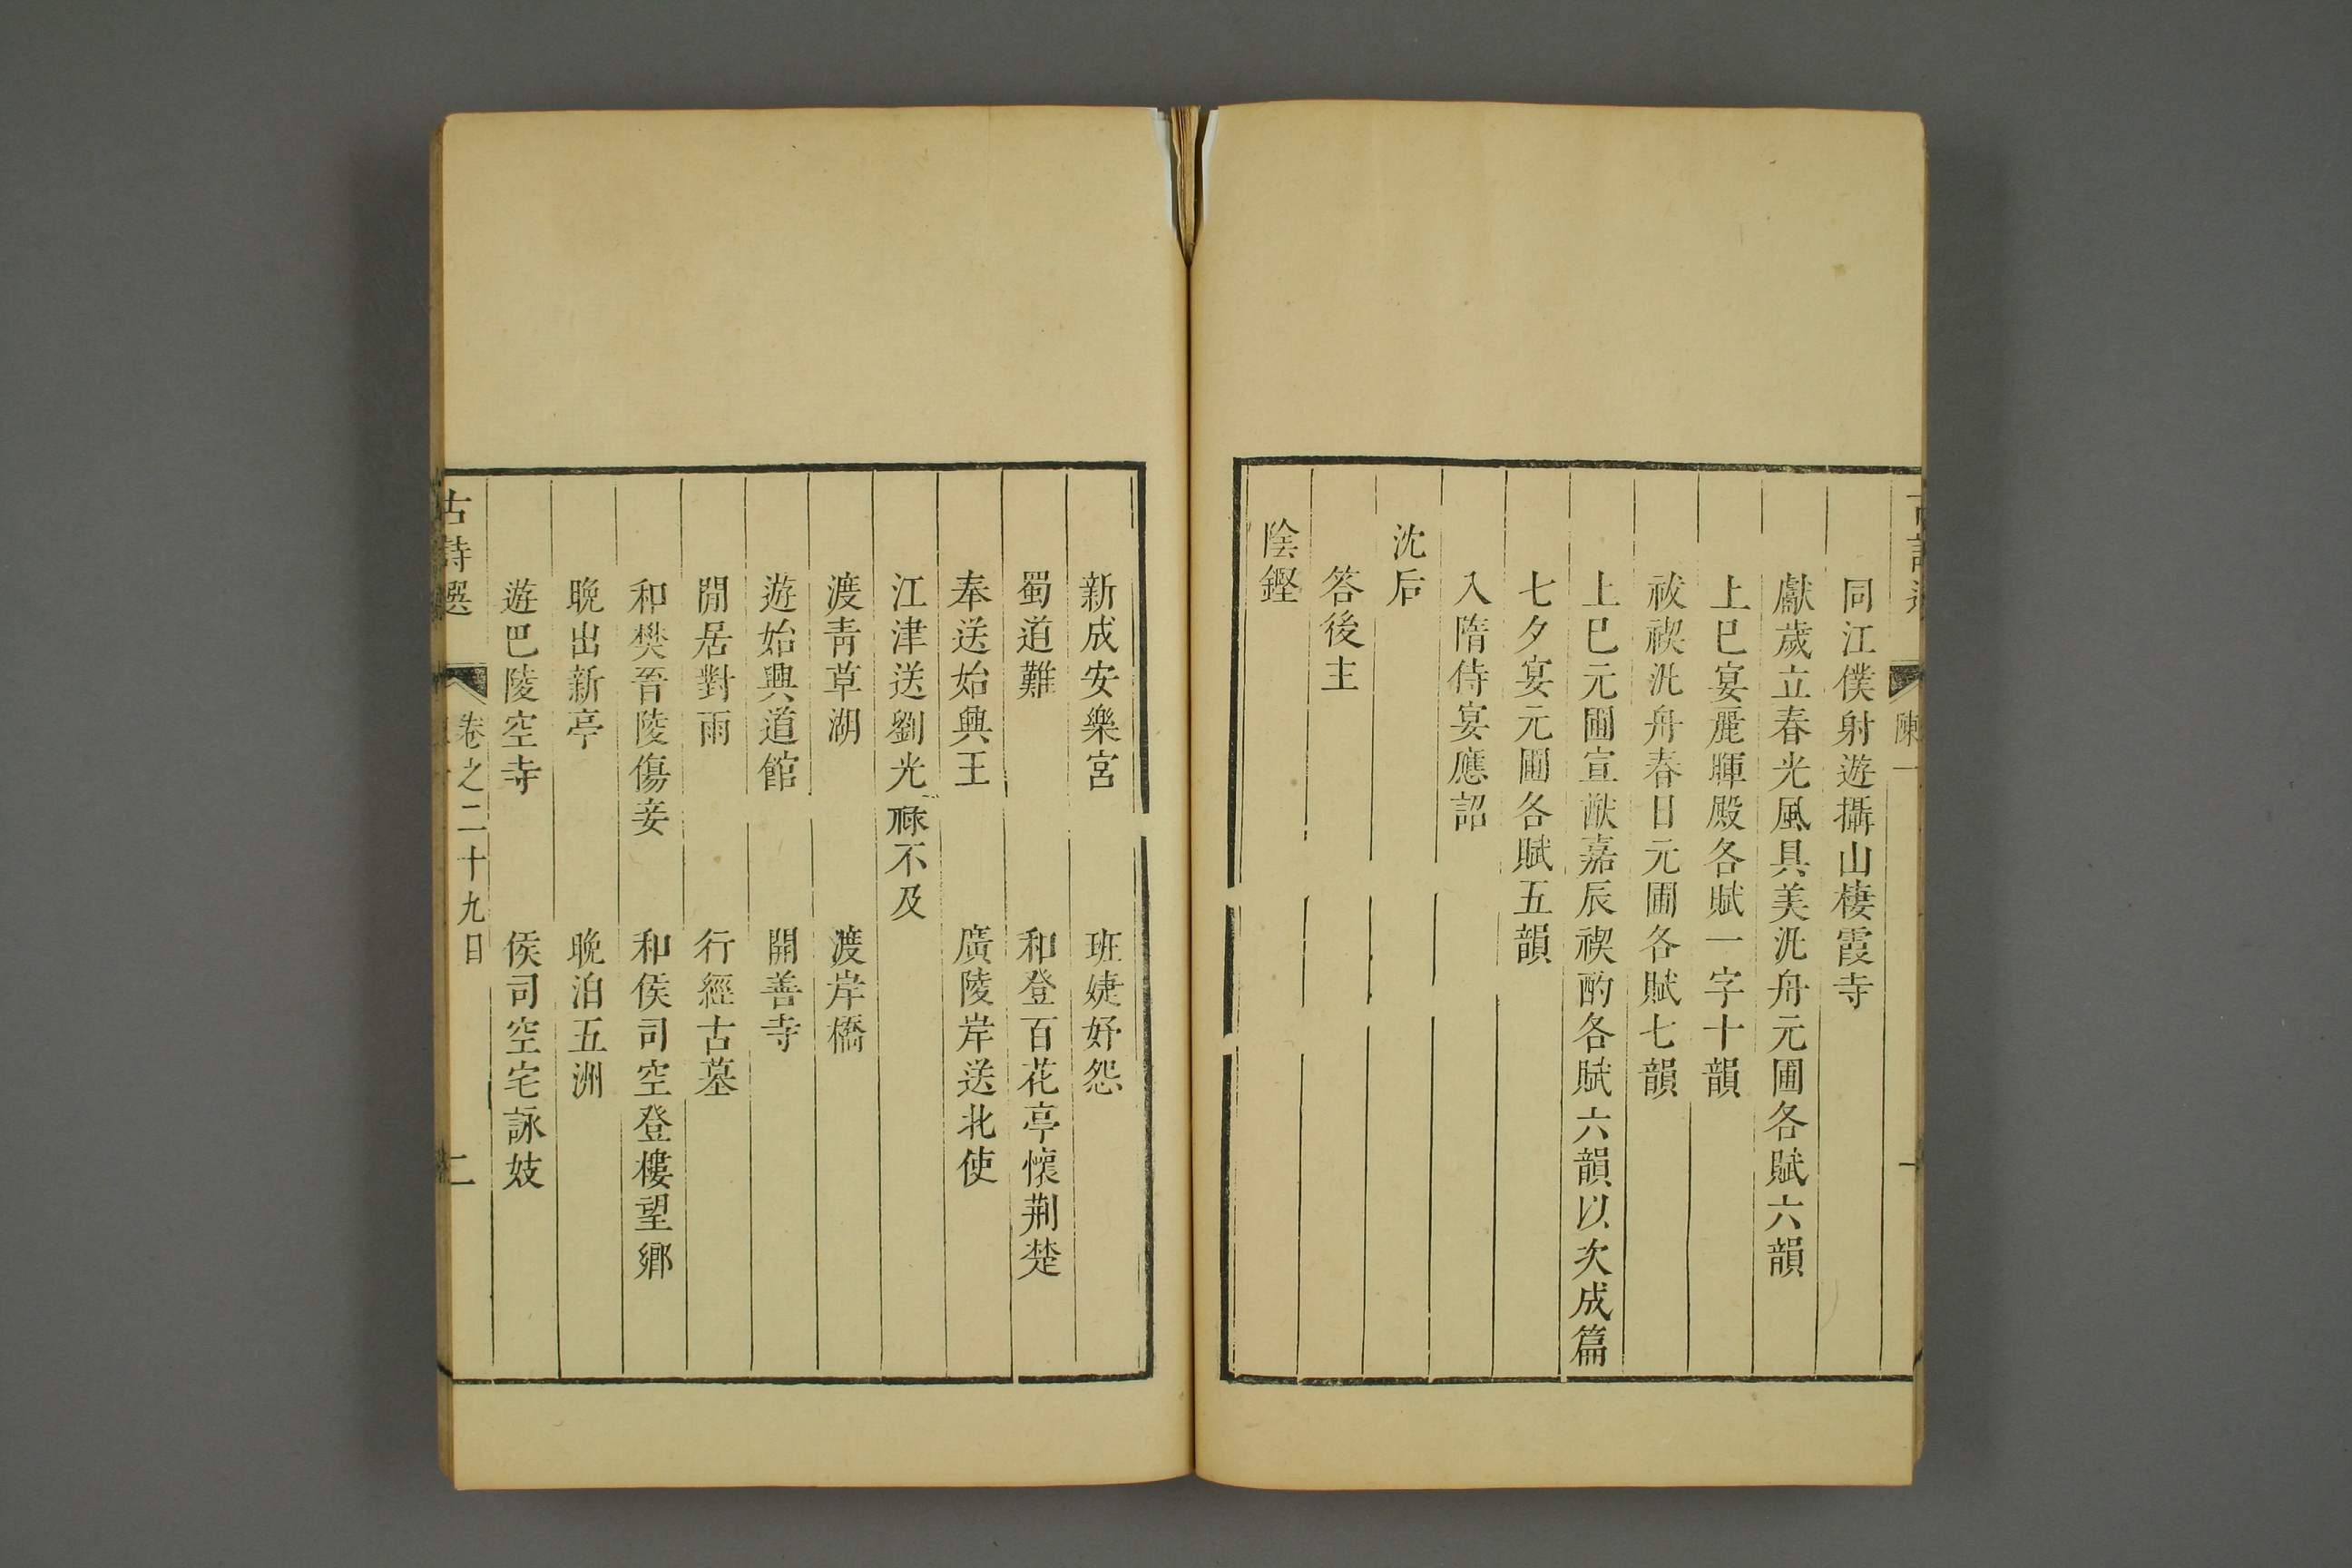 陳一
同江僕射遊攝山棲霞寺
獻歲立春光風具美汎舟元圃各賦六韻
上巳宴麗暉殿各賦一字十韻
祓禊汎舟春日元圃各賦七韻
上巳元圃宣猷嘉辰禊酌各賦六韻以次成篇
七夕宴元圃各賦五韻
入隋侍宴應詔
沈后
答後主
陰鏗
新成安樂宮　班婕妤怨
蜀道難　和登百花亭懷荆楚
奉送始興王　廣陵岸送北使
江津送劉光祿不及
渡青草湖　渡岸橋
遊始興道館　開善寺
閒居對雨　行經古墓
和樊晉陵傷妾　和侯司空登樓望鄉
晚出新亭　晚泊五洲
遊巴陵空寺　侯司空宅詠妓
古詩選　卷之二十九目　二